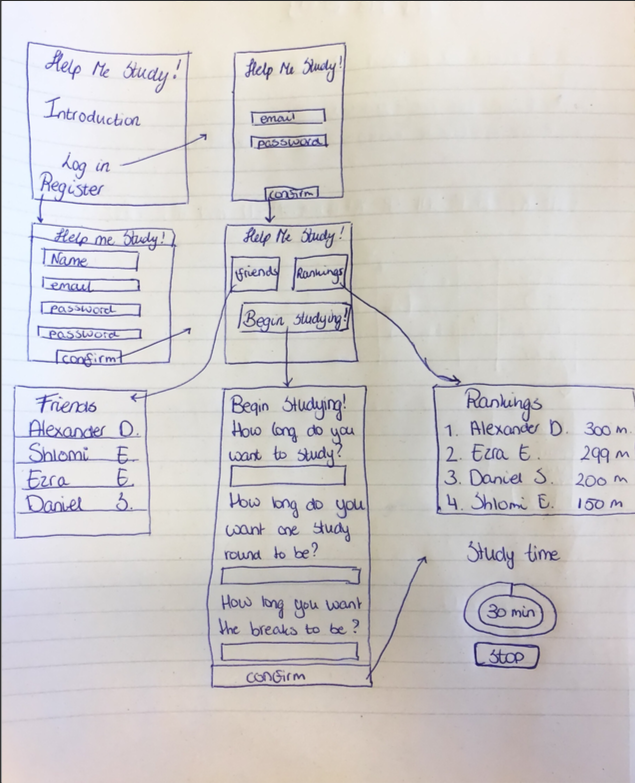 Help Me Study!
Introduction
Log in
Register
Help Me Study!
email
password
confirm
Help me Study!
Name
email
password
password
confirm
Help Me Study!
friends
Rankings
Begin studying!
Friends
Alexander D.
Shlomi E.
Ezra E.
Daniel S.
Begin Studying!
How long do you
want to study?
How long do you
want one study
round to be?
How long you want
the breaks to be?
confirm
Rankings
1. Alexander D. 300 m.
2. Ezra E. 299 m
3. Daniel S. 200 m
4. Shlomi E. 150 m
Study time
30 min
STOP